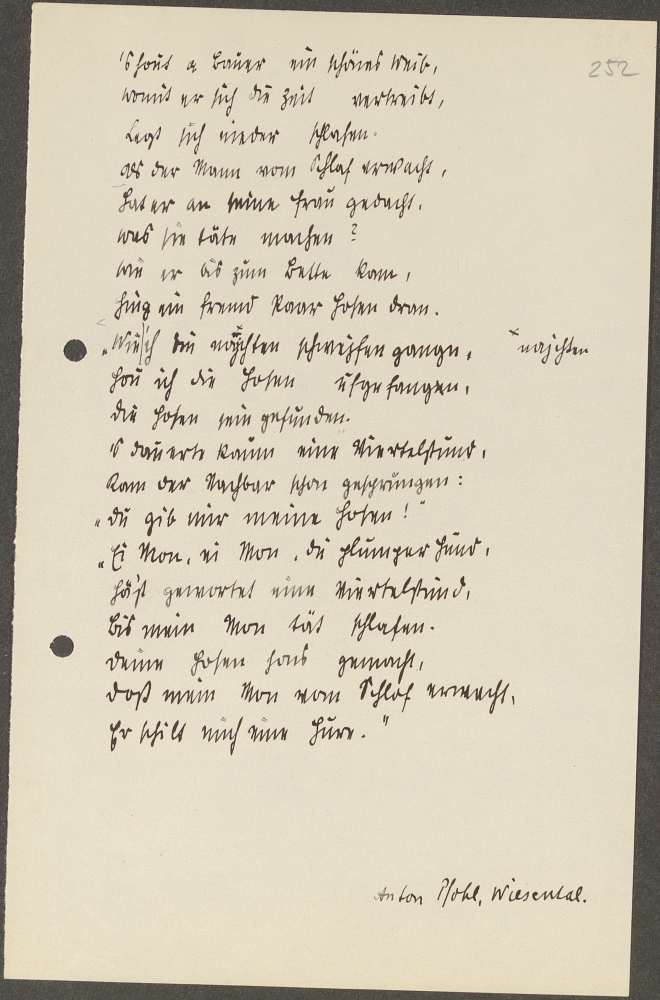 252
'S hout a Bauer ein schönes Weib,
womit er sich die Zeit vertreibt,
Legt sich nieder schlafen.
Als der Mann vom Schlaf erwacht,
Hat er an seine Frau gedacht,
was sie täte machen?
wie er bis zum Bette kam,
Hing ein fremd Paar Hosen dran.
"Wie ich bin schweifen gange, × najchten
Hou ich die Hosen ufgefangen,
die Hosen sein gefunden.
's dauerte kaum eine Viertelstund,
Kam der Nachbar schon gesprungen:
"du gib mir meine Hosen!"
"Ei Mon, ei Mon, du plumper Hund,
Häst gewortet eine Viertelstund,
Bis mein Mon tät schlafen.
Deine Hosen hons gemacht,
Doß mein Mon vom Schlof erwacht,
Er schilt mich eine Hure."
Anton Pohl, Wiesental.